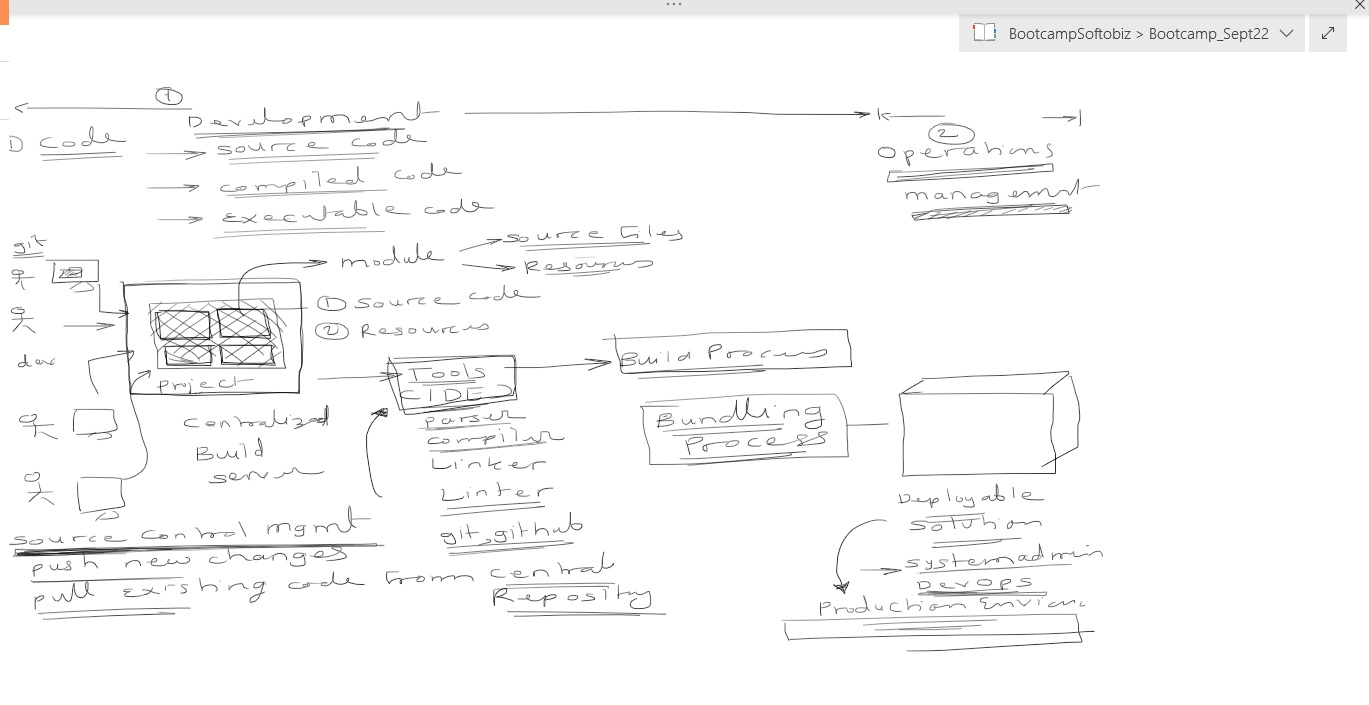 BootcampSoftobiz > Bootcamp_Sept22
①
Development
D Code
→ source code
→ compiled code
→ Executable code
②
Operations
management
git
module
Source Files
Resources
① Source code
② Resources
dev
Project
Centralized
Build
server
Tools
(IDE)
parser
compiler
Linker
Linter
git, github
Build Process
Bundling
Process
Deployable
solution
→ system admin
DevOps
Production
source control mgmt
push new changes
pull existing code from central
Repository